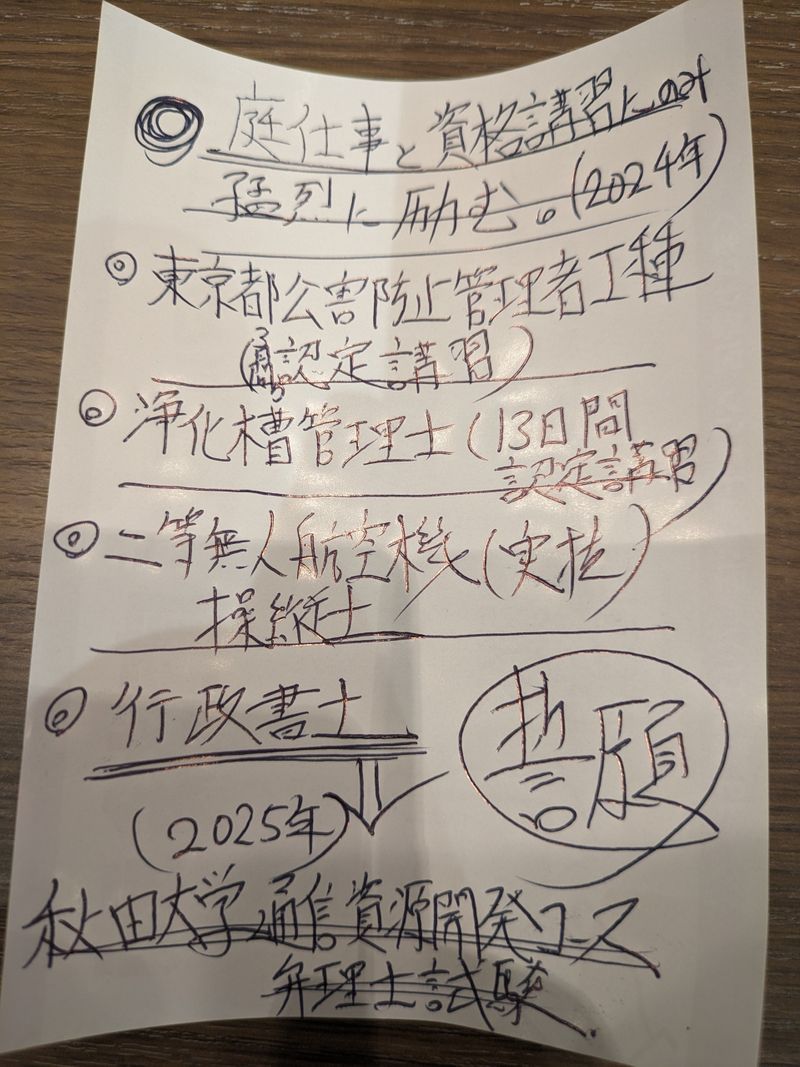 庭仕事と資格講習に
猛烈に励む。(2024年)
東京都公害防止管理者I種
(認定講習)
浄化槽管理士(13日間
認定講習)
二等無人航空機(実技)
操縦士
行政書士
誓願
(2025年)
秋田大学通信資源開発コース
弁理士試験.